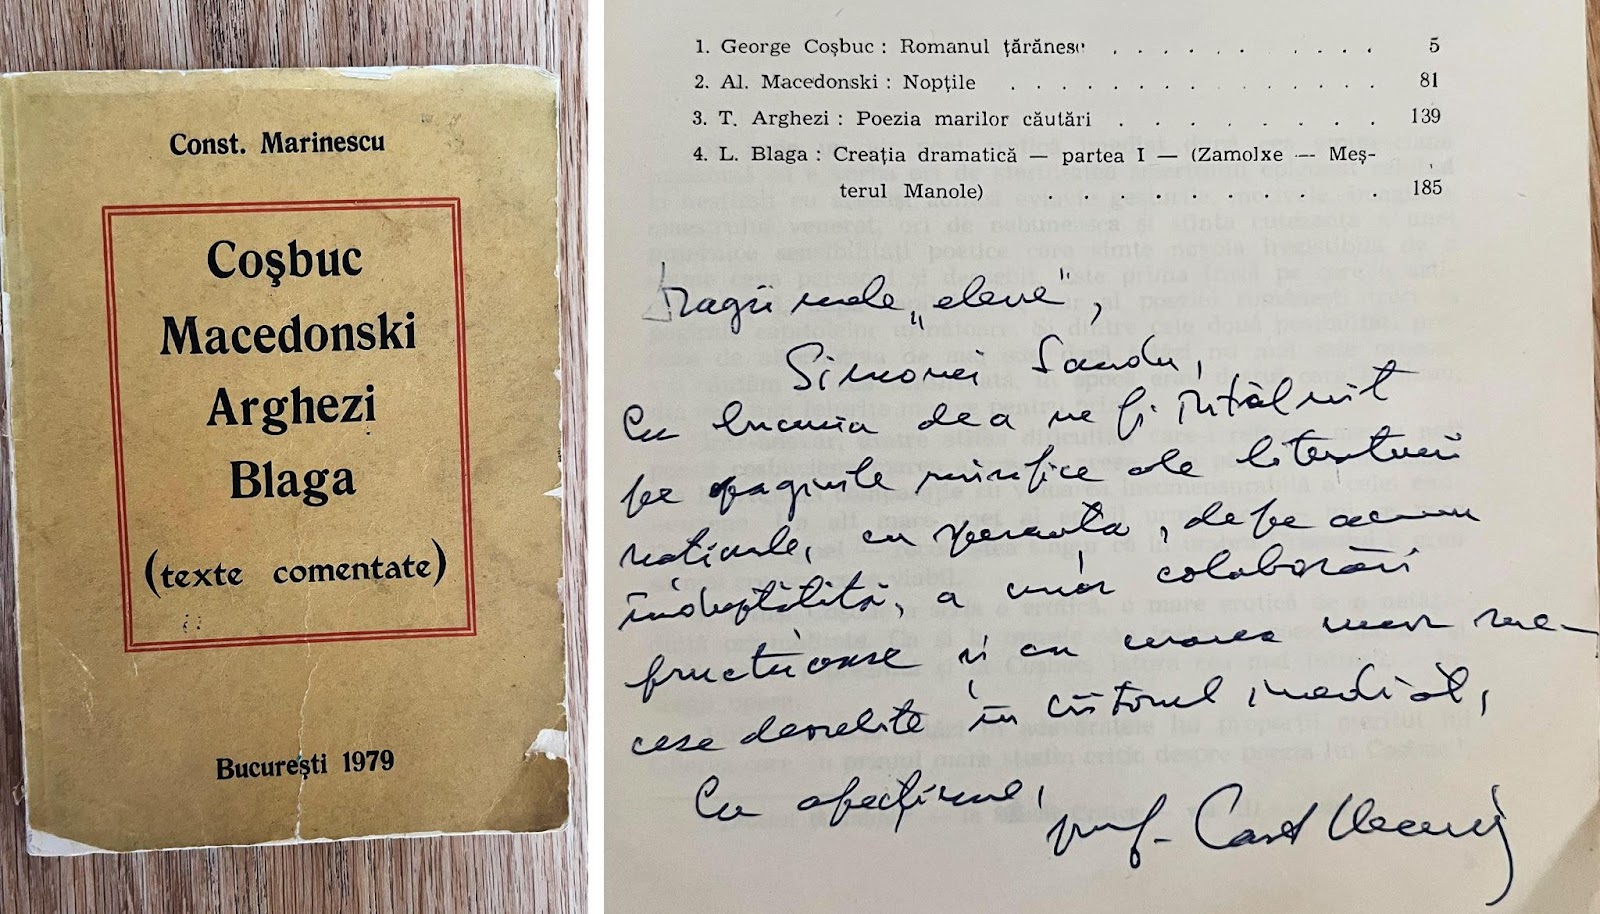 Const. Marinescu
Coşbuc
Macedonski
Arghezi
Blaga
(texte comentate)
Bucureşti 1979
1. George Coşbuc : Romanul ţărănesc . . . . . . . . . . . 5
2. Al. Macedonski : Nopţile . . . . . . . . . . . . . . 81
3. T. Arghezi : Poezia marilor căutări . . . . . . . . . 139
4. L. Blaga : Creaţia dramatică — partea I — (Zamolxe — Meş-
terul Manole) . . . . . . . . . . 185
Dragii mele „eleve",
Simonei Sandu,
Cu bucuria de a ne fi întâlnit
pe paginile mirifice ale literaturii
naționale, cu speranța, de pe acum
îndreptățită, a unor colaborări
fructuoase și cu urarea unor suc-
cese deosebite în viitorul imediat,
Cu afecțiune,
prof. Const Marinescu